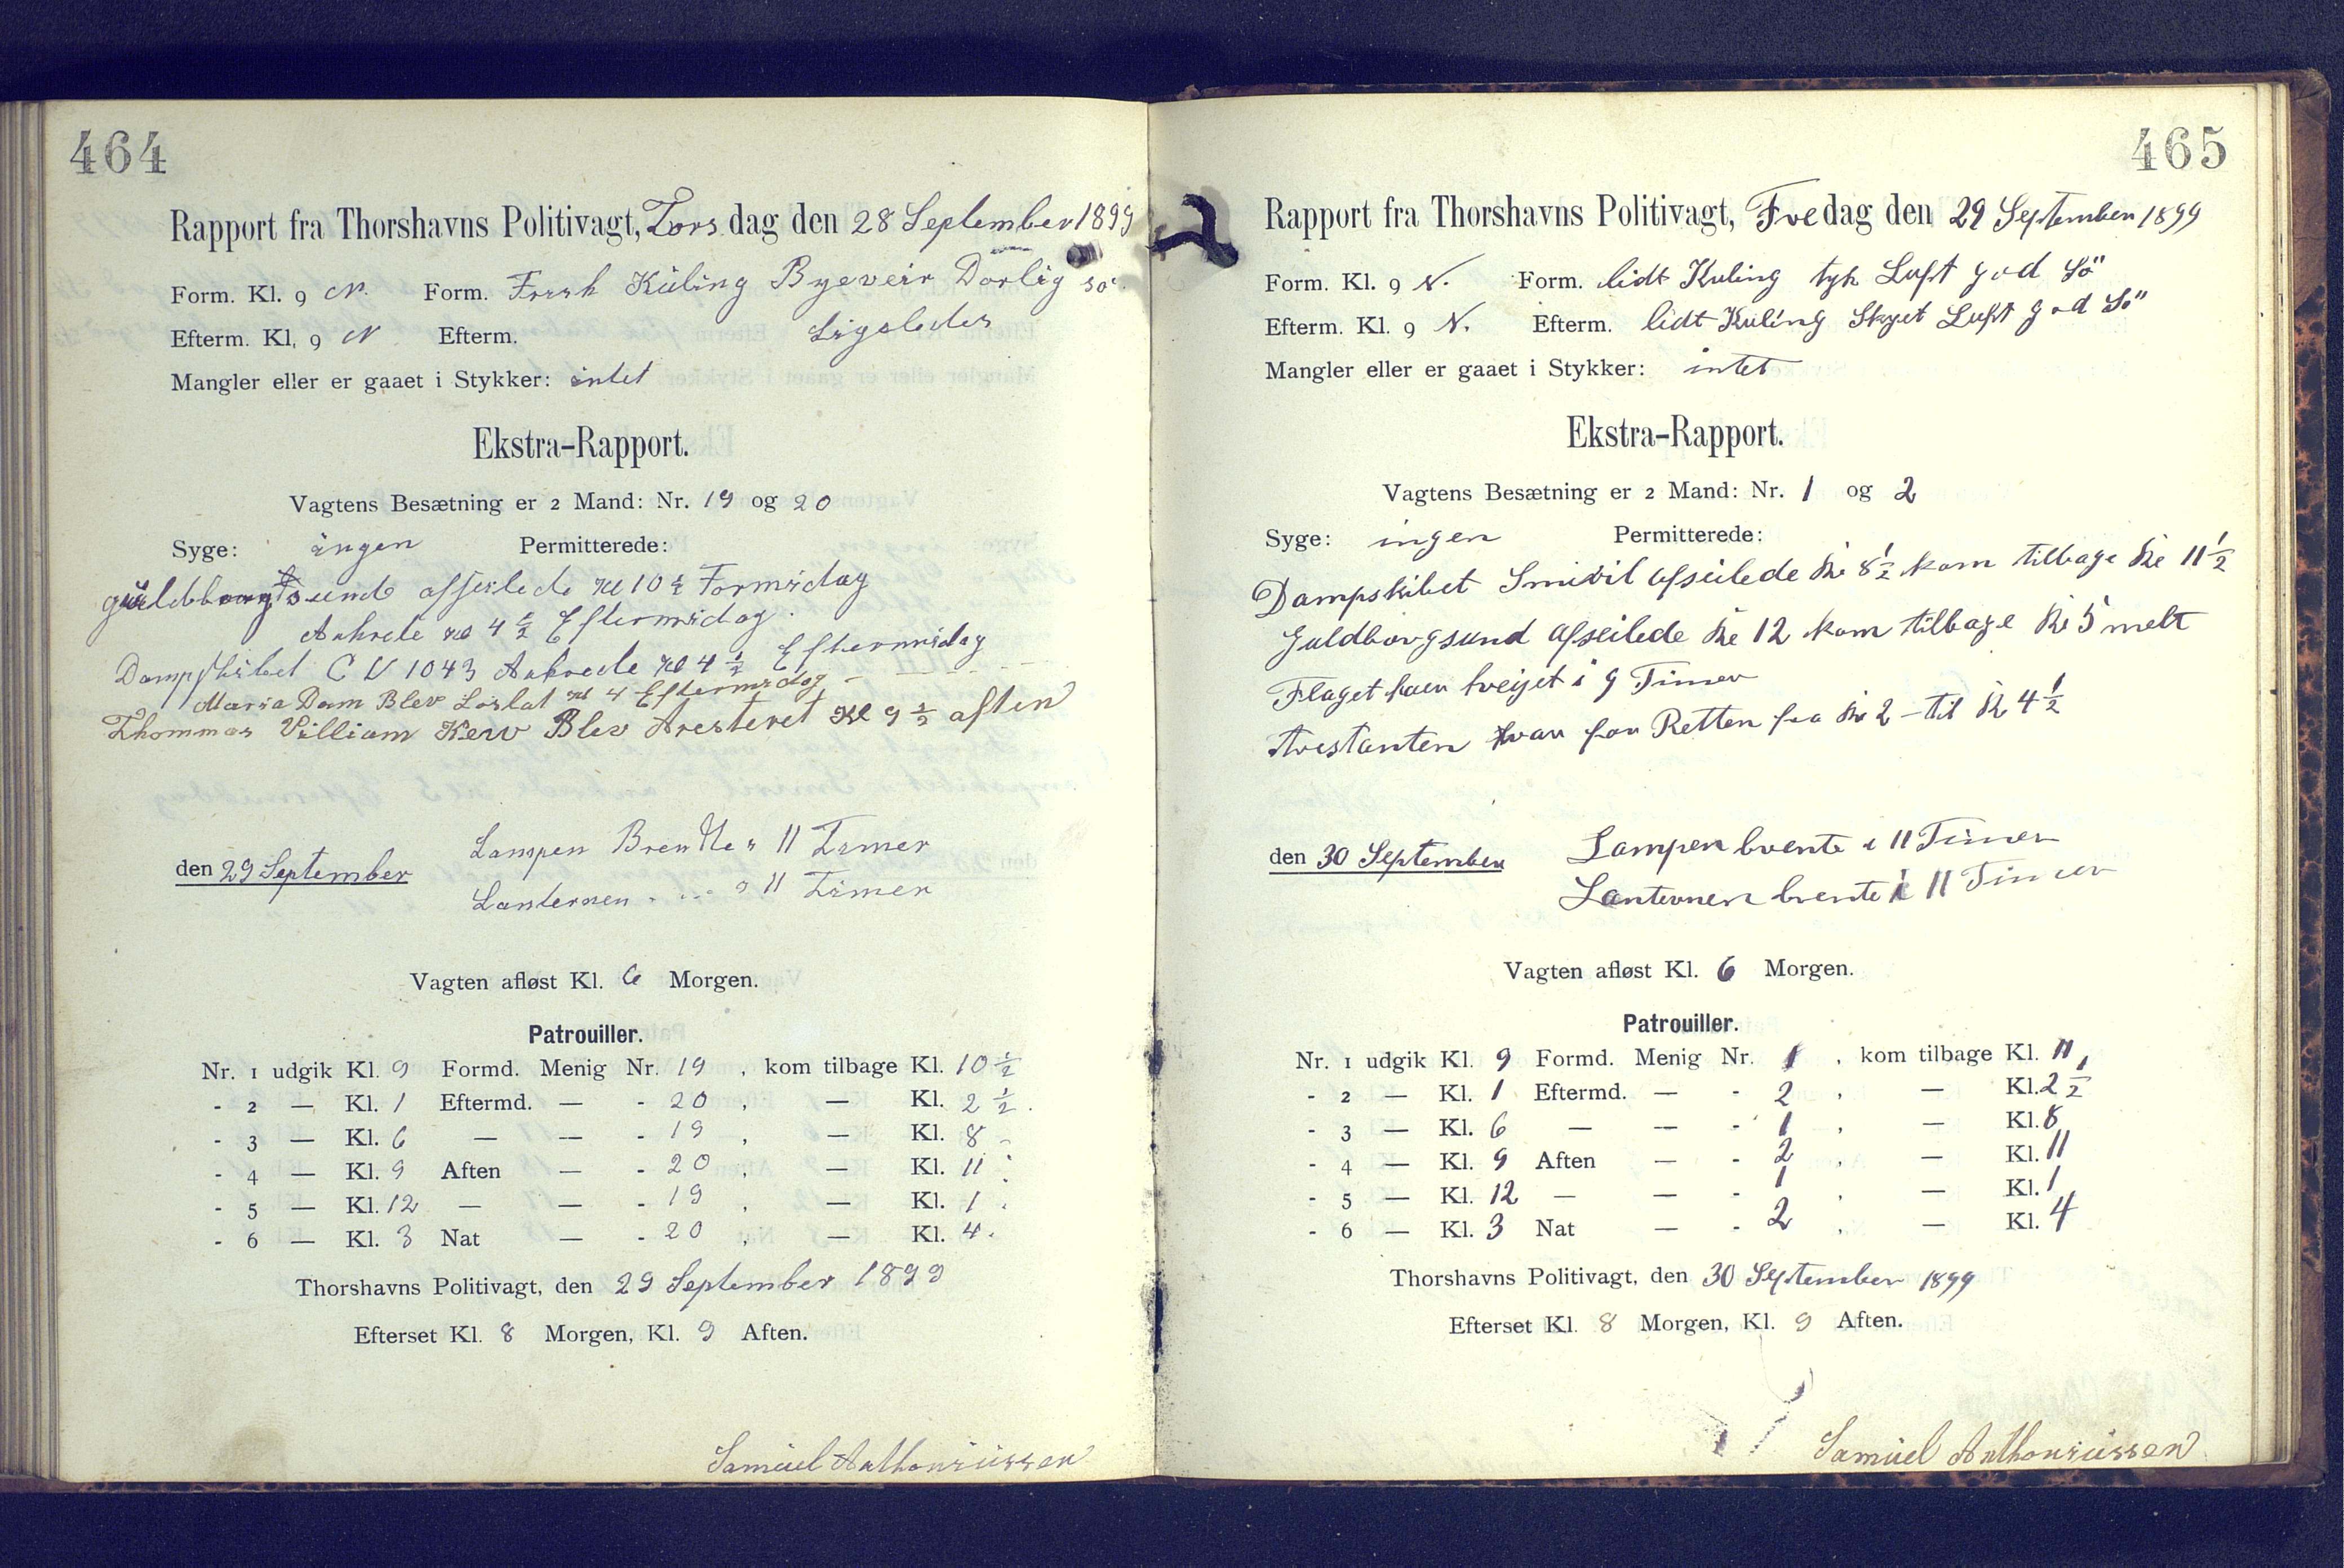 464
Rapport fra Thorshavns Politivagt, Torsdag den 28 September 1899
Form. Kl. 9 N. Form. Frish Kùling Byeveir Dorlig sö
Efterm. Kl. 9 N Efterm. Ligeledes
Mangler eller er gaaet i Stykker: intet
Ekstra-Rapport.
Vagtens Besætning er 2 Mand: Nr. 19 og 20
Syge: ingen Permitterede:
guldborgsund afseilede Kl 10 ½ Formidag
Ankrede Kl 4 ½ Eftermidag.
Dampskibet C V 1043 Ankrede Kl 4 ½ Eftermidag
Maria Dam Blev Löslat Kl 4 Eftermidag
Thommas Villiam Kerv Blev Aresteret Kl 9 ½ aften
Lampen Brente i 11 Timer
den 29 September
Lanternen - - - i 11 Timer
Vagten afløst Kl. 6 Morgen.
Patrouiller.
Nr. 1 udgik Kl. 9 Formd. Menig Nr. 19, kom tilbage Kl. 10 ½
- 2 — Kl. 1 Eftermd. — - 20, — Kl. 2 ½
- 3 — Kl. 6 — — - 19, — Kl. 8
- 4 — Kl. 9 Aften — - 20, — Kl. 11
- 5 — Kl. 12 — — - 19, — Kl. 1
- 6 — Kl. 3 Nat — - 20, — Kl. 4.
Thorshavns Politivagt, den 29 September 1899
Efterset Kl. 8 Morgen, Kl. 9 Aften.
Samùel Anthoniùssen
465
Rapport fra Thorshavns Politivagt, Fredag den 29 September 1899
Form. Kl. 9 N. Form. lidt Kuling tyk Luft god Sö
Efterm. Kl. 9 N. Efterm. lidt Kuling Skyet Luft god Sö
Mangler eller er gaaet i Stykker: intet
Ekstra-Rapport.
Vagtens Besætning er 2 Mand: Nr. 1 og 2
Syge: ingen Permitterede:
Dampskibet Smiril afseilede Kl 8 ½ kom tilbage Kl 11 ½
Guldborgsund afseilede Kl 12 kom tilbage Kl 5 melt
Flaget haer hveiset i 9 Timer
Arestanten var for Retten fra Kl 2 - til Kl 4 ½
Lampen brente i 11 Timer
den 30 September
Lanternen brente i 11 Timer
Vagten afløst Kl. 6 Morgen.
Patrouiller.
Nr. 1 udgik Kl. 9 Formd. Menig Nr. 1, kom tilbage Kl. 11
- 2 — Kl. 1 Eftermd. — - 2, — Kl. 2 ½
- 3 — Kl. 6 — — - 1, — Kl. 8
- 4 — Kl. 9 Aften — - 2, — Kl. 11
- 5 — Kl. 12 — — - 1, — Kl. 1
- 6 — Kl. 3 Nat — - 2, — Kl. 4
Thorshavns Politivagt, den 30 September 1899
Efterset Kl. 8 Morgen, Kl. 9 Aften.
Samùel Anthoniùssen